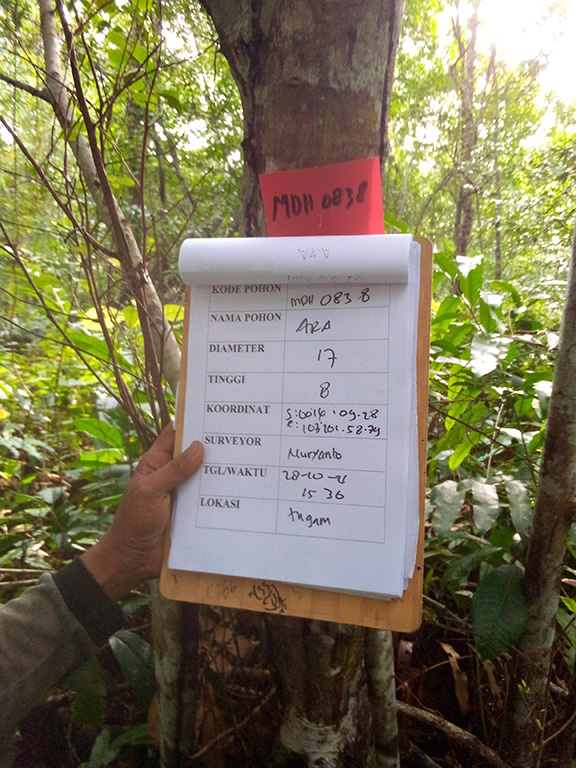 MDH 0838
KODE POHON MDH 0838
NAMA POHON ARA
DIAMETER 17
TINGGI 8
KOORDINAT S:0016.09.28
E:103.01.58.79
SURVEYOR Nuryanto
TGL/WAKTU 28-10-21
15 36
LOKASI tugam